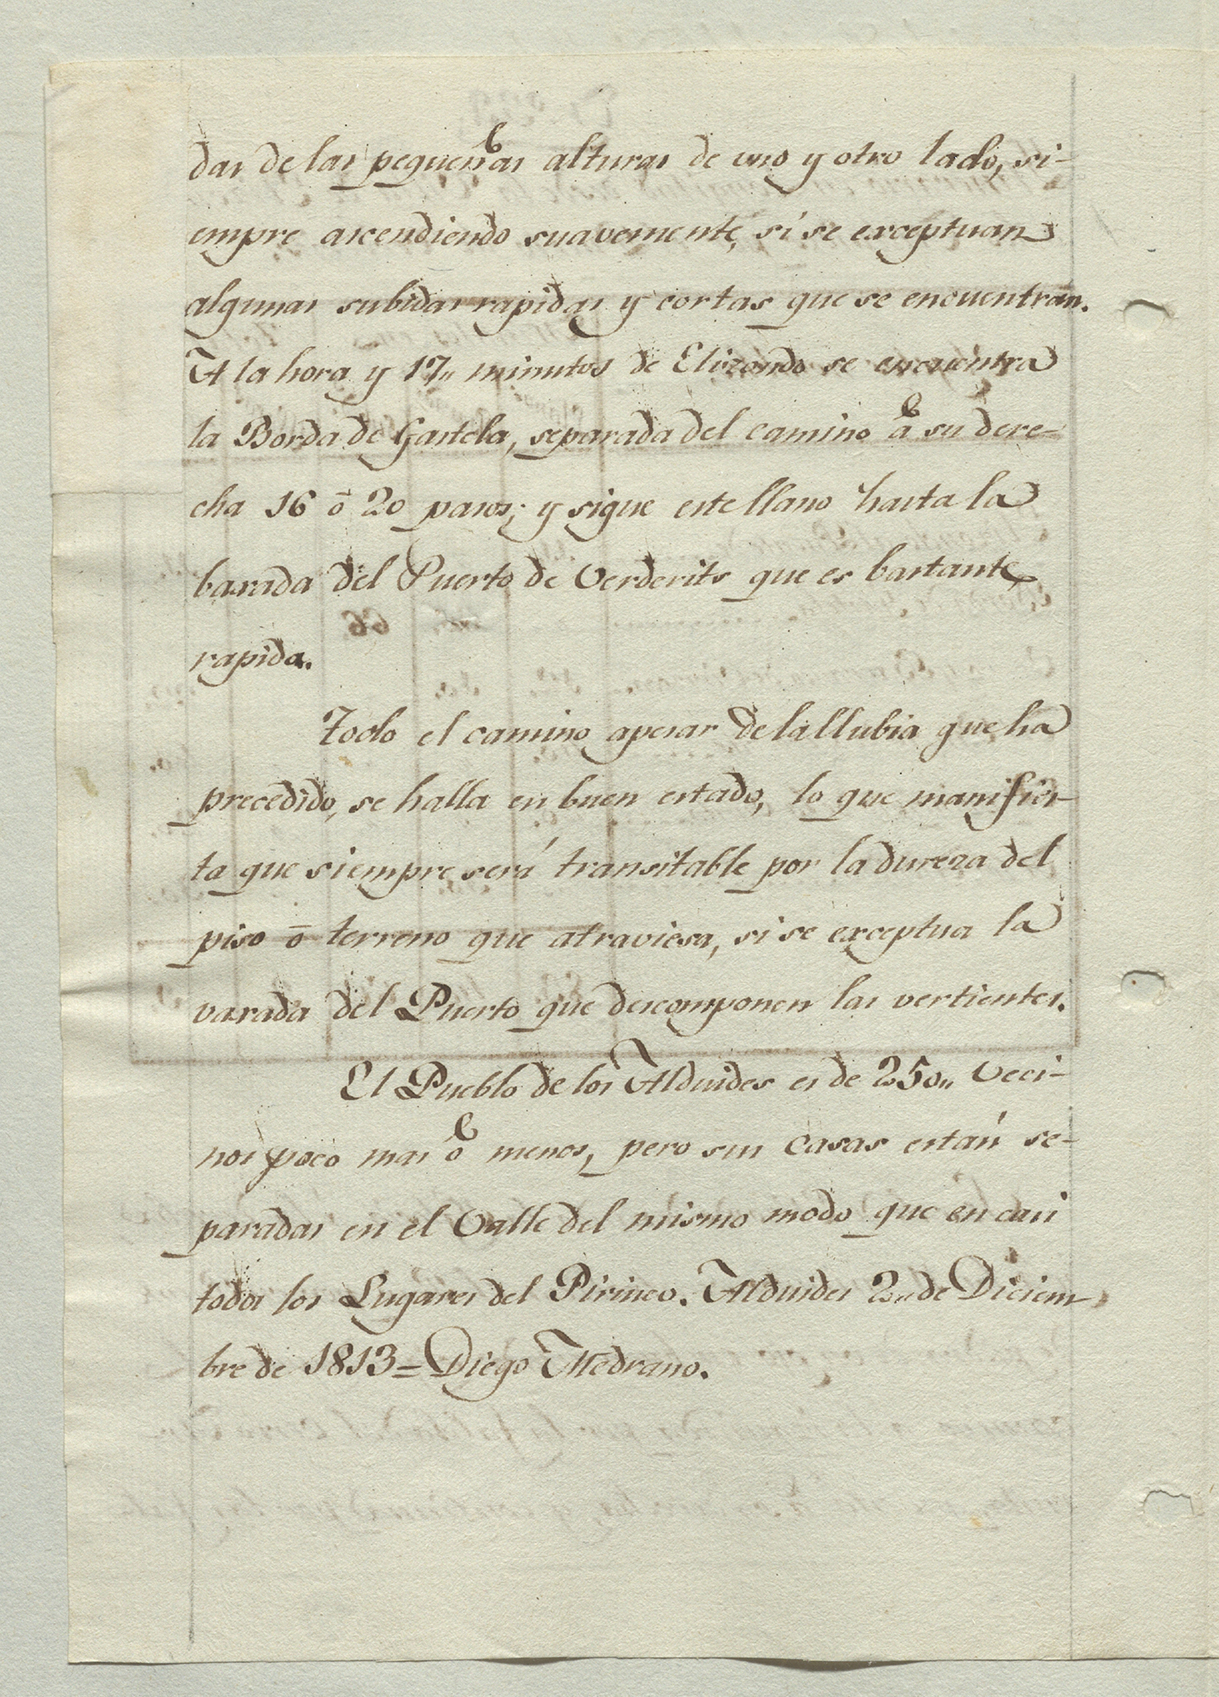 das de las pequeñas alturas de uno y otro lado, si-
empre ascendiendo suavemente, si se exceptuan
algunas subidas rapidas y cortas que se encuentran.
A la hora y 17,, minutos de Elizondo se encuentra
la Borda de Gastela, separada del camino á su dere-
cha 16 ó 20 pasos; y sigue este llano hasta la
baxada del Puerto de Verderits que es bastante
rapida.
Todo el camino apesar de la llubia que ha
precedido, se halla en buen estado, lo que manifies-
ta que siempre será transitable por la dureza del
piso ó terreno que atraviesa, si se exceptua la
vaxada del Puerto que descomponen las vertientes.
El Pueblo de los Alduides es de 250,, Veci-
nos poco mas ó menos, pero sus casas están se-
paradas en el Valle del mismo modo que en casi
todos los Lugares del Pirineo. Alduides 2,, de Diciem-
bre de 1813 = Diego Medrano.